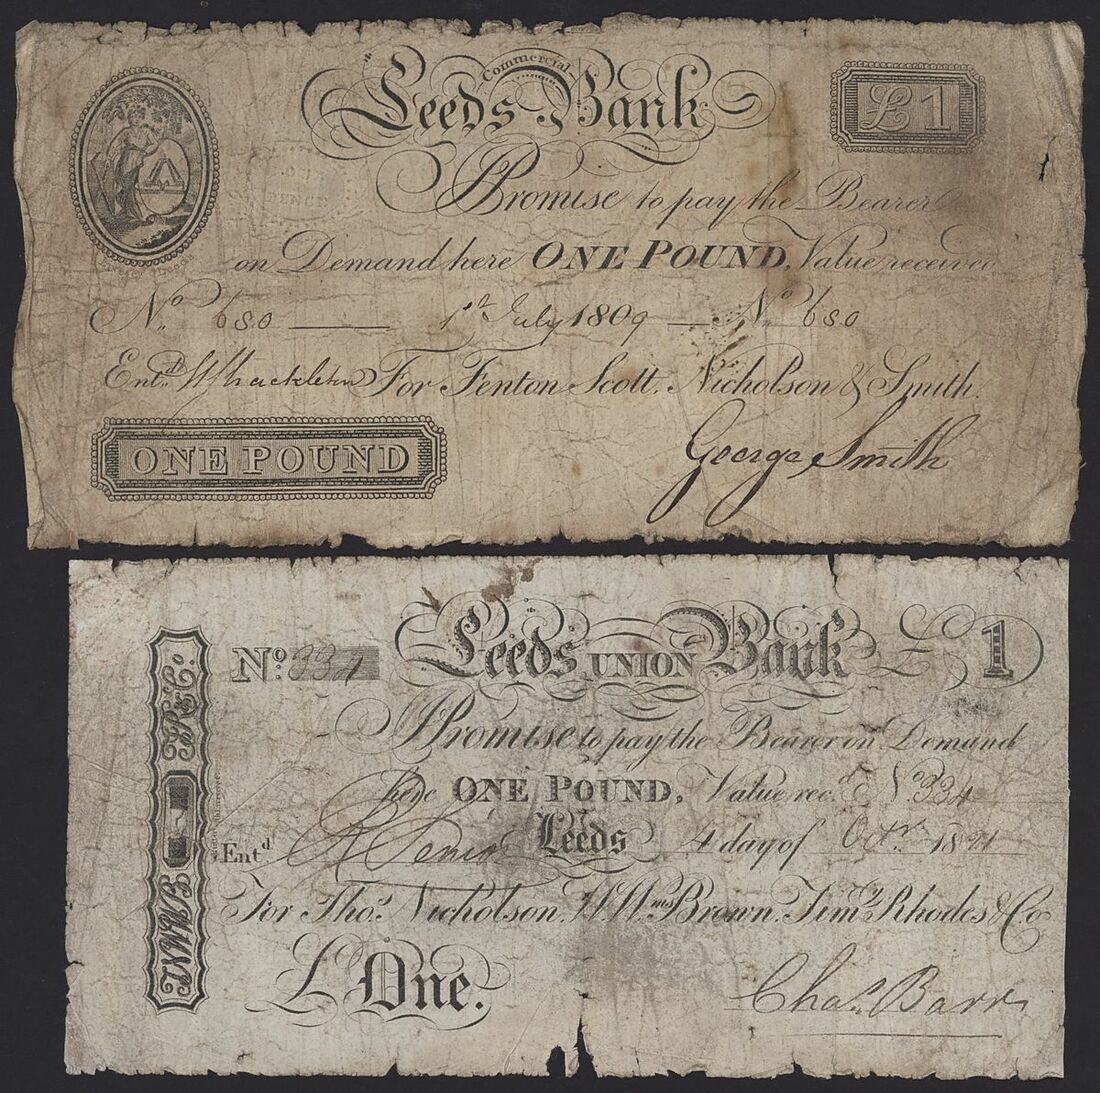 Leeds Commercial Bank
£1
I Promise to pay the Bearer
on Demand here ONE POUND, Value received
No. 680 1st July 1809 No. 680
Entd. For Fenton Scott, Nicholson & Smith.
ONE POUND
George Smith
No. 334
Leeds UNION Bank £1
I Promise to pay the Bearer on Demand
here ONE POUND, Value rec.d No 334
Entd Leeds 4 day of Octr. 18
For Thos. Nicholson, Wms Brown, Timy. Rhodes & Co
£ One.
Chas. Barr